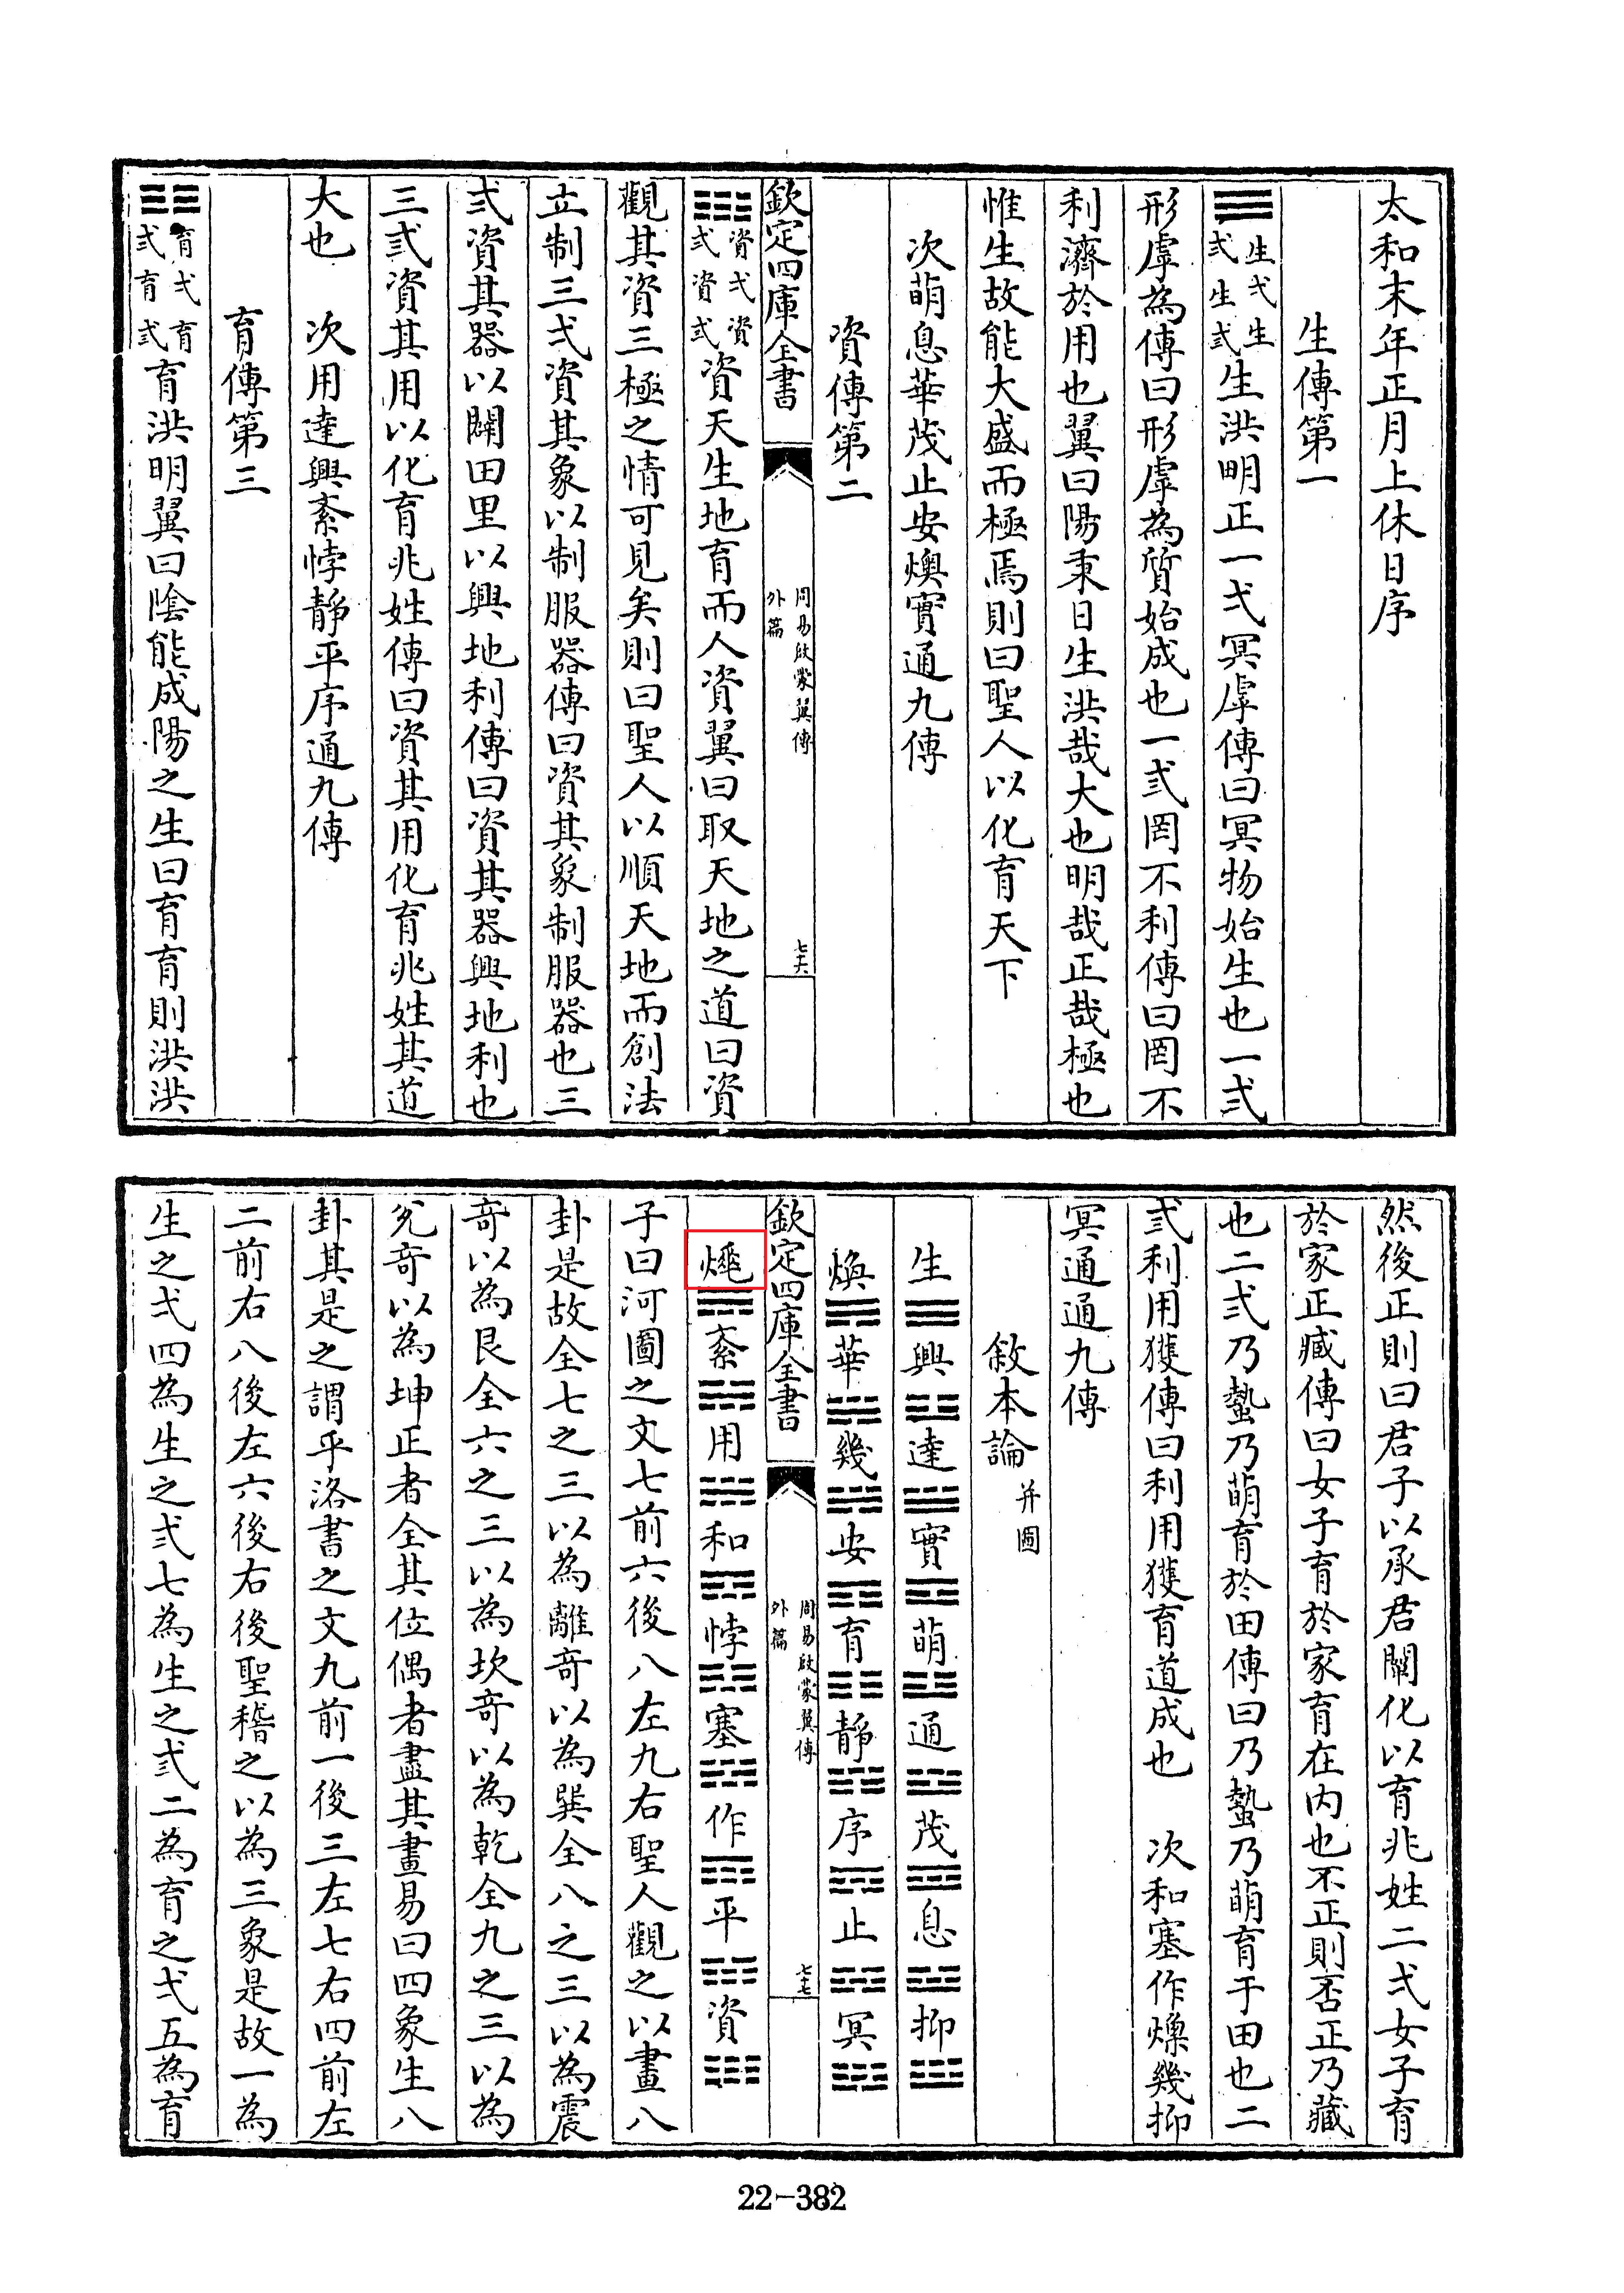 太和末年正月上休日序
生傳第一
生弌生弍生弎生洪明正一弌冥虖傳曰冥物始生也一弍
形虖為傳曰形虖為質始成也一弎罔不利傳曰罔不
利濟於用也翼曰陽秉日生洪哉大也明哉正哉極也
惟生故能大盛而極焉則曰聖人以化育天下
次萌息華茂止安燠實通九傳
資傳第二
欽定四庫全書
周易啟蒙翼傳
外篇
七十六
資弌資弍資弎資天生地育而人資翼曰取天地之道曰資
觀其資三極之情可見矣則曰聖人以順天地而創法
立制三弌資其象以制服器傳曰資其象制服器也三
弍資其器以闢田里以興地利傳曰資其器興地利也
三弎資其用以化育兆姓傳曰資其用化育兆姓其道
大也 次用達興紊悖靜平序通九傳
育傳第三
育弌育弍育弎育洪明翼曰陰能成陽之生曰育育則洪洪
然後正則曰君子以承君闢化以育兆姓二弌女子育
於家正臧傳曰女子育於家育在內也不正則否正乃藏
也二弍乃蟄乃萌育於田傳曰乃蟄乃萌育于田也二
弎利用獲傳曰利用獲育道成也 次和塞作燠幾抑
冥通通九傳
敘本論并圖
生興達實萌通茂息抑
煥華幾安育靜序止冥
欽定四庫全書
周易啟蒙翼傳
外篇
七十七
紊用和悖塞作平資
子曰河圖之文七前六後八左九右聖人觀之以畫八
卦是故全七之三以為離奇以為巽全八之三以為震
奇以為艮全六之三以為坎奇以為乾全九之三以為
兊奇以為坤正者全其位偶者盡其畫易曰四象生八
卦其是之謂乎洛書之文九前一後三左七右四前左
二前右八後左六後右後聖稽之以為三象是故一為
生之弌四為生之弍七為生之弎二為育之弌五為育
22-382